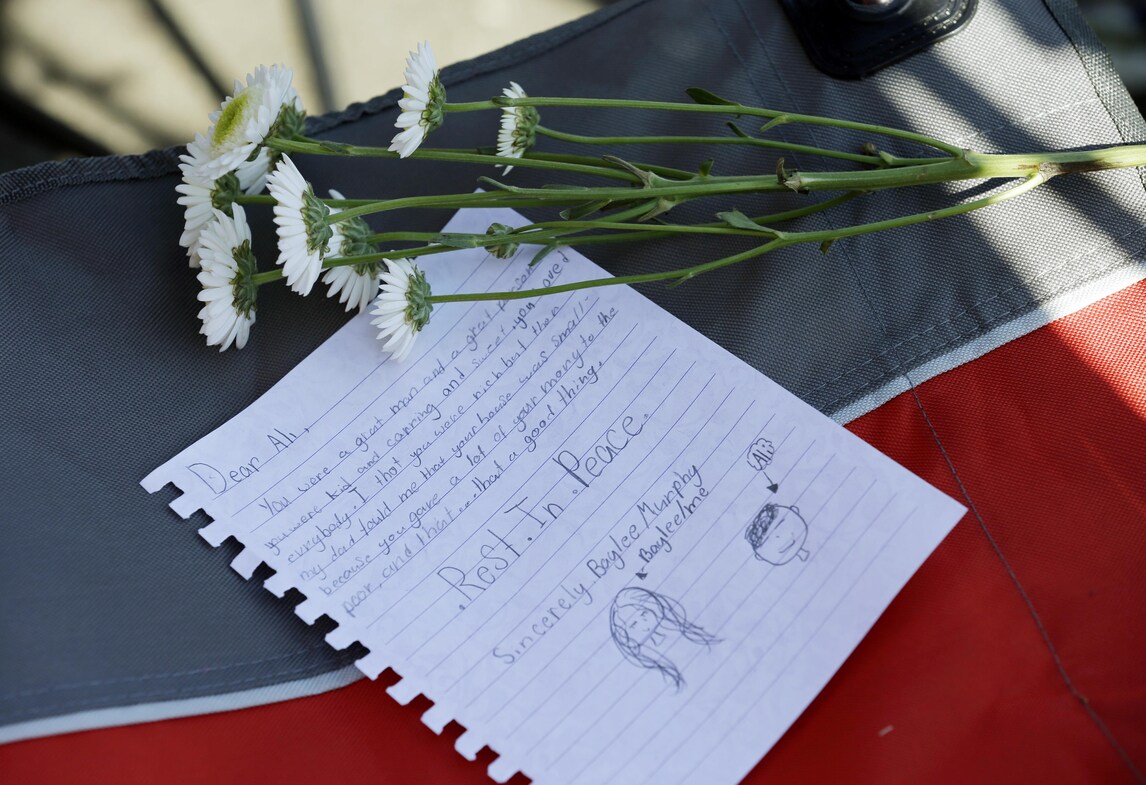 Dear Ali,
You were a great man and a great person
you were kid and carring and sweet, you loved
everybody. I that you were rich but then
my dad tould me that your house was small
because you gave a lot of your mony to the
poor, and that... that a good thing.
.Rest.In.Peace.
Sincerely Baylee Murphy
Baylee/me
Ali